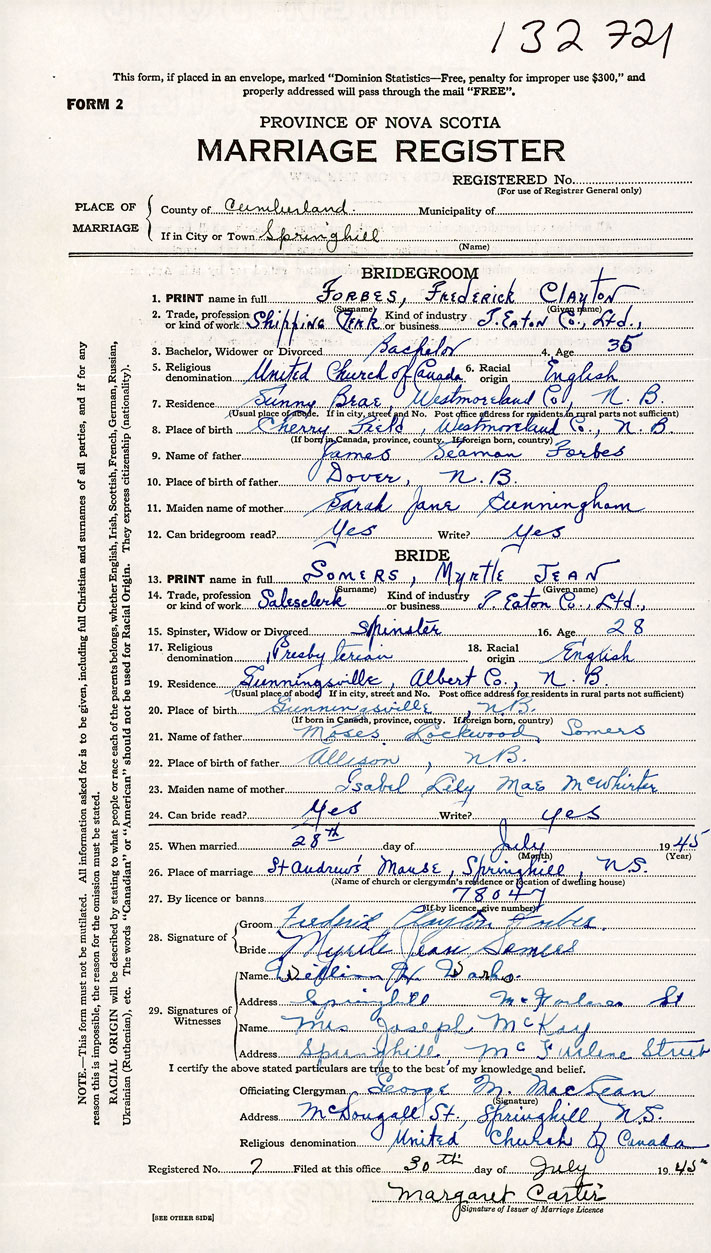 132 721
This form, if placed in an envelope, marked "Dominion Statistics—Free, penalty for improper use $300," and
properly addressed will pass through the mail "FREE".
FORM 2
PROVINCE OF NOVA SCOTIA
MARRIAGE REGISTER
REGISTERED No.
(For use of Registrar General only)
PLACE OF MARRIAGE
County of Cumberland. Municipality of
If in City or Town Springhill
(Name)
BRIDEGROOM
1. PRINT name in full FORBES, FREDERICK CLAYTON
(Surname) (Given name)
2. Trade, profession or kind of work Shipping Clerk Kind of industry or business T. Eaton Co., Ltd.,
3. Bachelor, Widower or Divorced Bachelor 4. Age 35
5. Religious denomination United Church of Canada 6. Racial origin English
7. Residence Sunny Brae, Westmoreland Co., N. B.
(Usual place of abode. If in city, street and No. Post office address for residents in rural parts not sufficient)
8. Place of birth Cherry Field, Westmoreland Co., N. B.
(If born in Canada, province, county. If foreign born, country)
9. Name of father James Seaman Forbes
10. Place of birth of father Dover, N. B.
11. Maiden name of mother Sarah Jane Cunningham
12. Can bridegroom read? Yes Write? Yes
BRIDE
13. PRINT name in full SOMERS, MYRTLE JEAN
(Surname) (Given name)
14. Trade, profession or kind of work Salesclerk Kind of industry or business T. Eaton Co., Ltd.,
15. Spinster, Widow or Divorced Spinster 16. Age 28
17. Religious denomination Presbyterian 18. Racial origin English
19. Residence Gunningsville, Albert Co., N. B.
(Usual place of abode. If in city, street and No. Post office address for residents in rural parts not sufficient)
20. Place of birth Gunningsville, N.B.
(If born in Canada, province, county. If foreign born, country)
21. Name of father Moses Lockwood Somers
22. Place of birth of father Allison, N.B.
23. Maiden name of mother Isabel Lily Mae McWhirter
24. Can bride read? Yes Write? Yes
25. When married 28th day of July 1945
(Month) (Year)
26. Place of marriage St Andrew's Manse, Springhill, N.S.
(Name of church or clergyman's residence or location of dwelling house)
27. By licence or banns 78047
(If by licence, give number)
28. Signature of
Groom Frederick Clayton Forbes.
Bride Myrtle Jean Somers
29. Signatures of Witnesses
Name William H. Warks.
Address Springhill McFarlane St
Name Mrs Joseph McKay
Address Springhill McFarlene Street
I certify the above stated particulars are true to the best of my knowledge and belief.
Officiating Clergyman George M. MacLean
(Signature)
Address McDougall St., Springhill, N.S.
Religious denomination United Church of Canada
Registered No. 7 Filed at this office 30th day of July 1945
Margaret Carter
Signature of Issuer of Marriage Licence
[SEE OTHER SIDE]
NOTE.—This form must not be mutilated. All information asked for is to be given, including full Christian and surnames of all parties, and if for any
reason this is impossible, the reason for the omission must be stated.
RACIAL ORIGIN will be described by stating to what people or race each of the parents belongs, whether English, Irish, Scottish, French, German, Russian,
Ukrainian (Ruthenian), etc. The words "Canadian" or "American" should not be used for Racial Origin. They express citizenship (nationality).